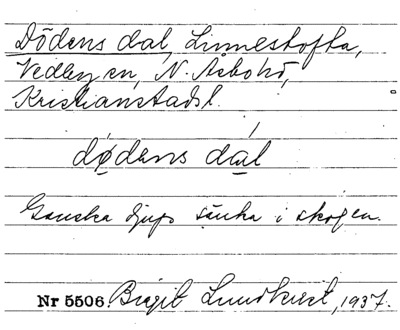 Dödens dal, Linneslofta,
Vedby sn, N. Åsbo hd,
Kristianstads l.
dødens dal
Ganska djup sänka i skogen.
Nr 5506 Birgit Lundkvist, 1937.